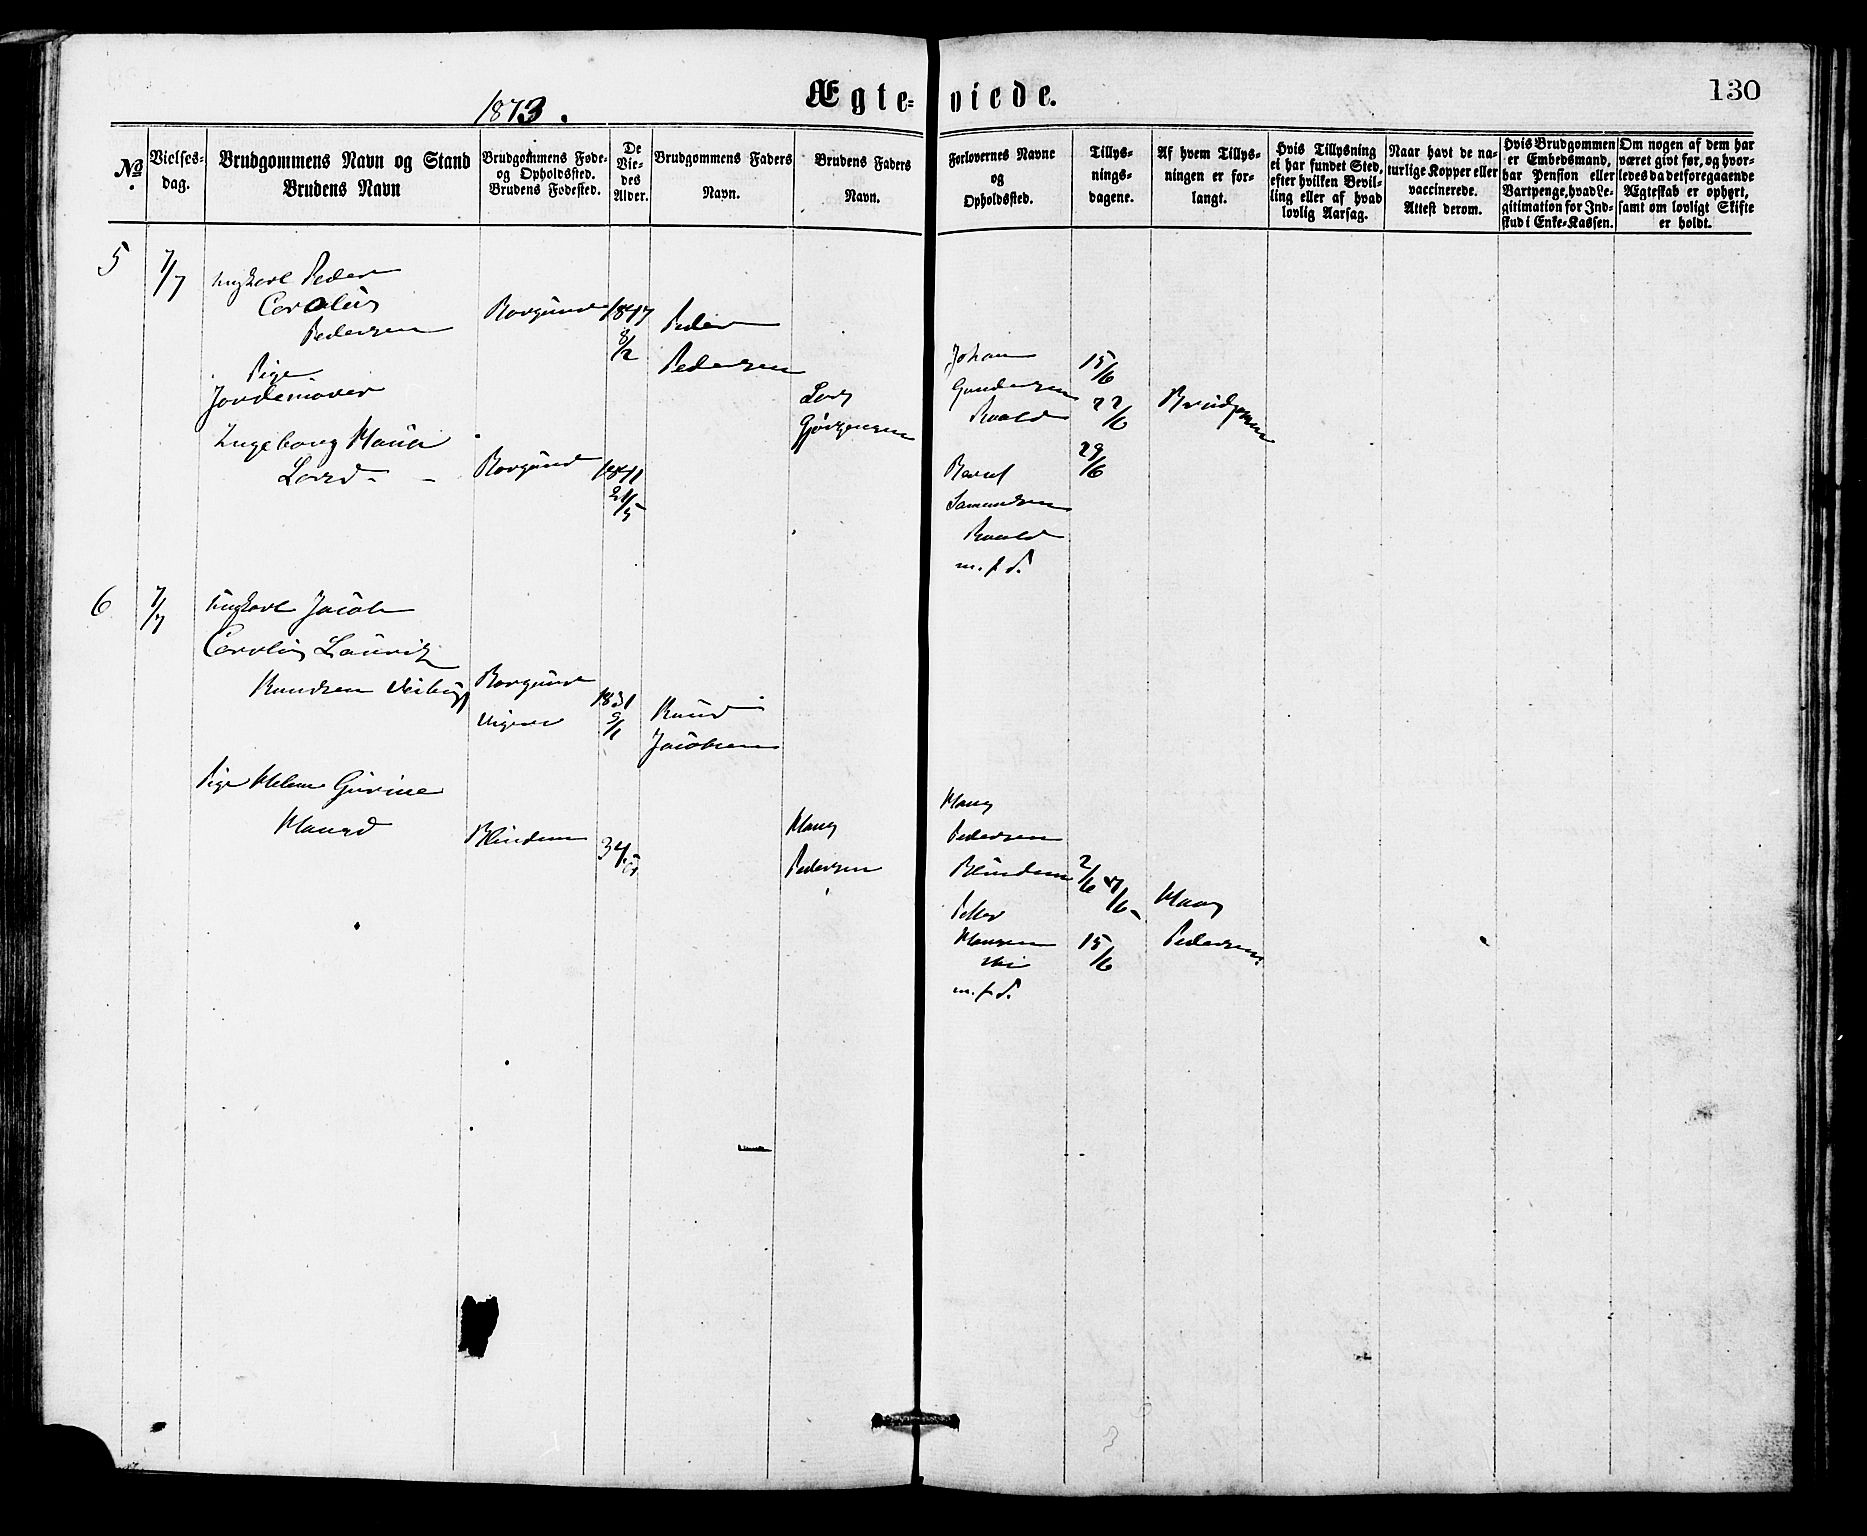 1873.
Ægteviede.
130
No.
Vielses-
dag.
Brudgommens Navn og Stand
Brudens Navn
Brudgommens Føde-
og Opholdssted.
Brudens Fødested.
De
Vie-
des
Alder.
Brudgommens Faders
Navn.
Brudens Faders
Navn.
Forlovernes Navne
og
Opholdssted.
Tillys-
nings-
dagene.
Af hvem Tillys-
ningen er for-
langt.
Hvis Tillysning
ei har fundet Sted,
efter hvilken Bevil-
ling eller af hvad
lovlig Aarsag.
Naar havt de na-
turlige Kopper eller
vaccinerede.
Attest derom.
Hvis Brudgommen
er Embedsmand,
har Pension eller
Vartpenge, hvad Le-
gitimation for Ind-
skud i Enke-Kassen.
Om nogen af dem har
været givt før, og hvor-
ledes da det foregaaende
Ægteskab er ophørt,
samt om lovligt Skifte
er holdt.
5
7/7
Ungkarl Peder
Carolus
Pedersen
Borgund
1847
8/2
Peder
Pedersen
Pige
Jordemoder
Ingeborg
Larsd.
Borgund
1841
21/5
Lars
Gjørgensen
Johan
Gundersen
Roald
Bernt
Samundsen
Roald
m. f. d.
15/6
22/6
29/6
Brudgommen
6
7/7
Ungkarl Jacob
Carolus Lauritz
Knudsen
Borgund
1831
9/1
Knud
Jacobsen
Pige Helene Gurine
Hansd
Blindem
34
Hans
Pedersen
Hans
Pedersen
Blindem
Petter
Hansen
m. f. d.
2/6
15/6
Hans
Pedersen